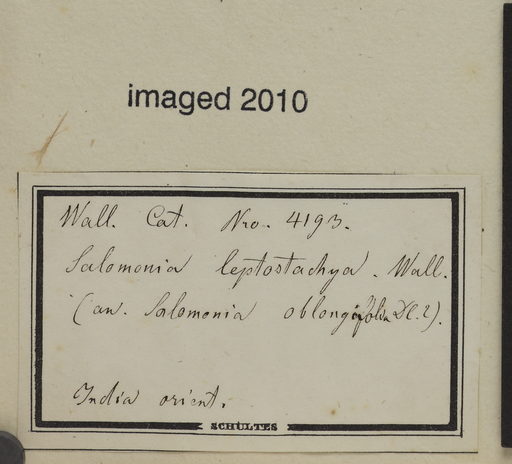 imaged 2010
Wall. Cat. Nro. 4193.
Salomonia leptostachya. Wall.
(an. Salomonia oblongifolia DC.?).
India orient.
SCHULTES